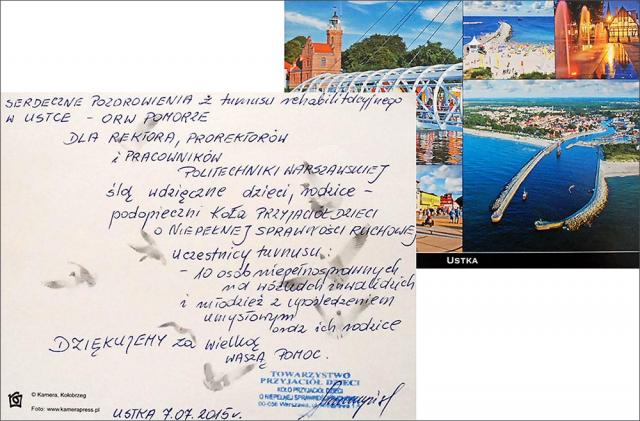 SERDECZNE POZDROWIENIA z turnusu rehabilitacyjnego
W USTCE - ORW POMORZE
DLA REKTORA, PROREKTORÓW
i PRACOWNIKÓW
POLITECHNIKI WARSZAWSKIEJ
ślą wdzięczne dzieci, rodzice -
podopieczni KOŁA PRZYJACIÓŁ DZIECI
O NIEPEŁNEJ SPRAWNOŚCI RUCHOWEJ
uczestnicy turnusu:
- 10 osób niepełnosprawnych
na wózkach inwalidzkich
i młodzież z upośledzeniem
umysłowym
oraz ich rodzice
DZIĘKUJEMY za wielką
WASZĄ POMOC.
TOWARZYSTWO
PRZYJACIÓŁ DZIECI
KOŁO PRZYJACIÓŁ DZIECI
O NIEPEŁNEJ SPRAWNOŚCI
00-656 Warszawa, ul.
© Kamera, Kołobrzeg
Foto: www.kamerapress.pl
USTKA 7.07.2015r.
USTKA